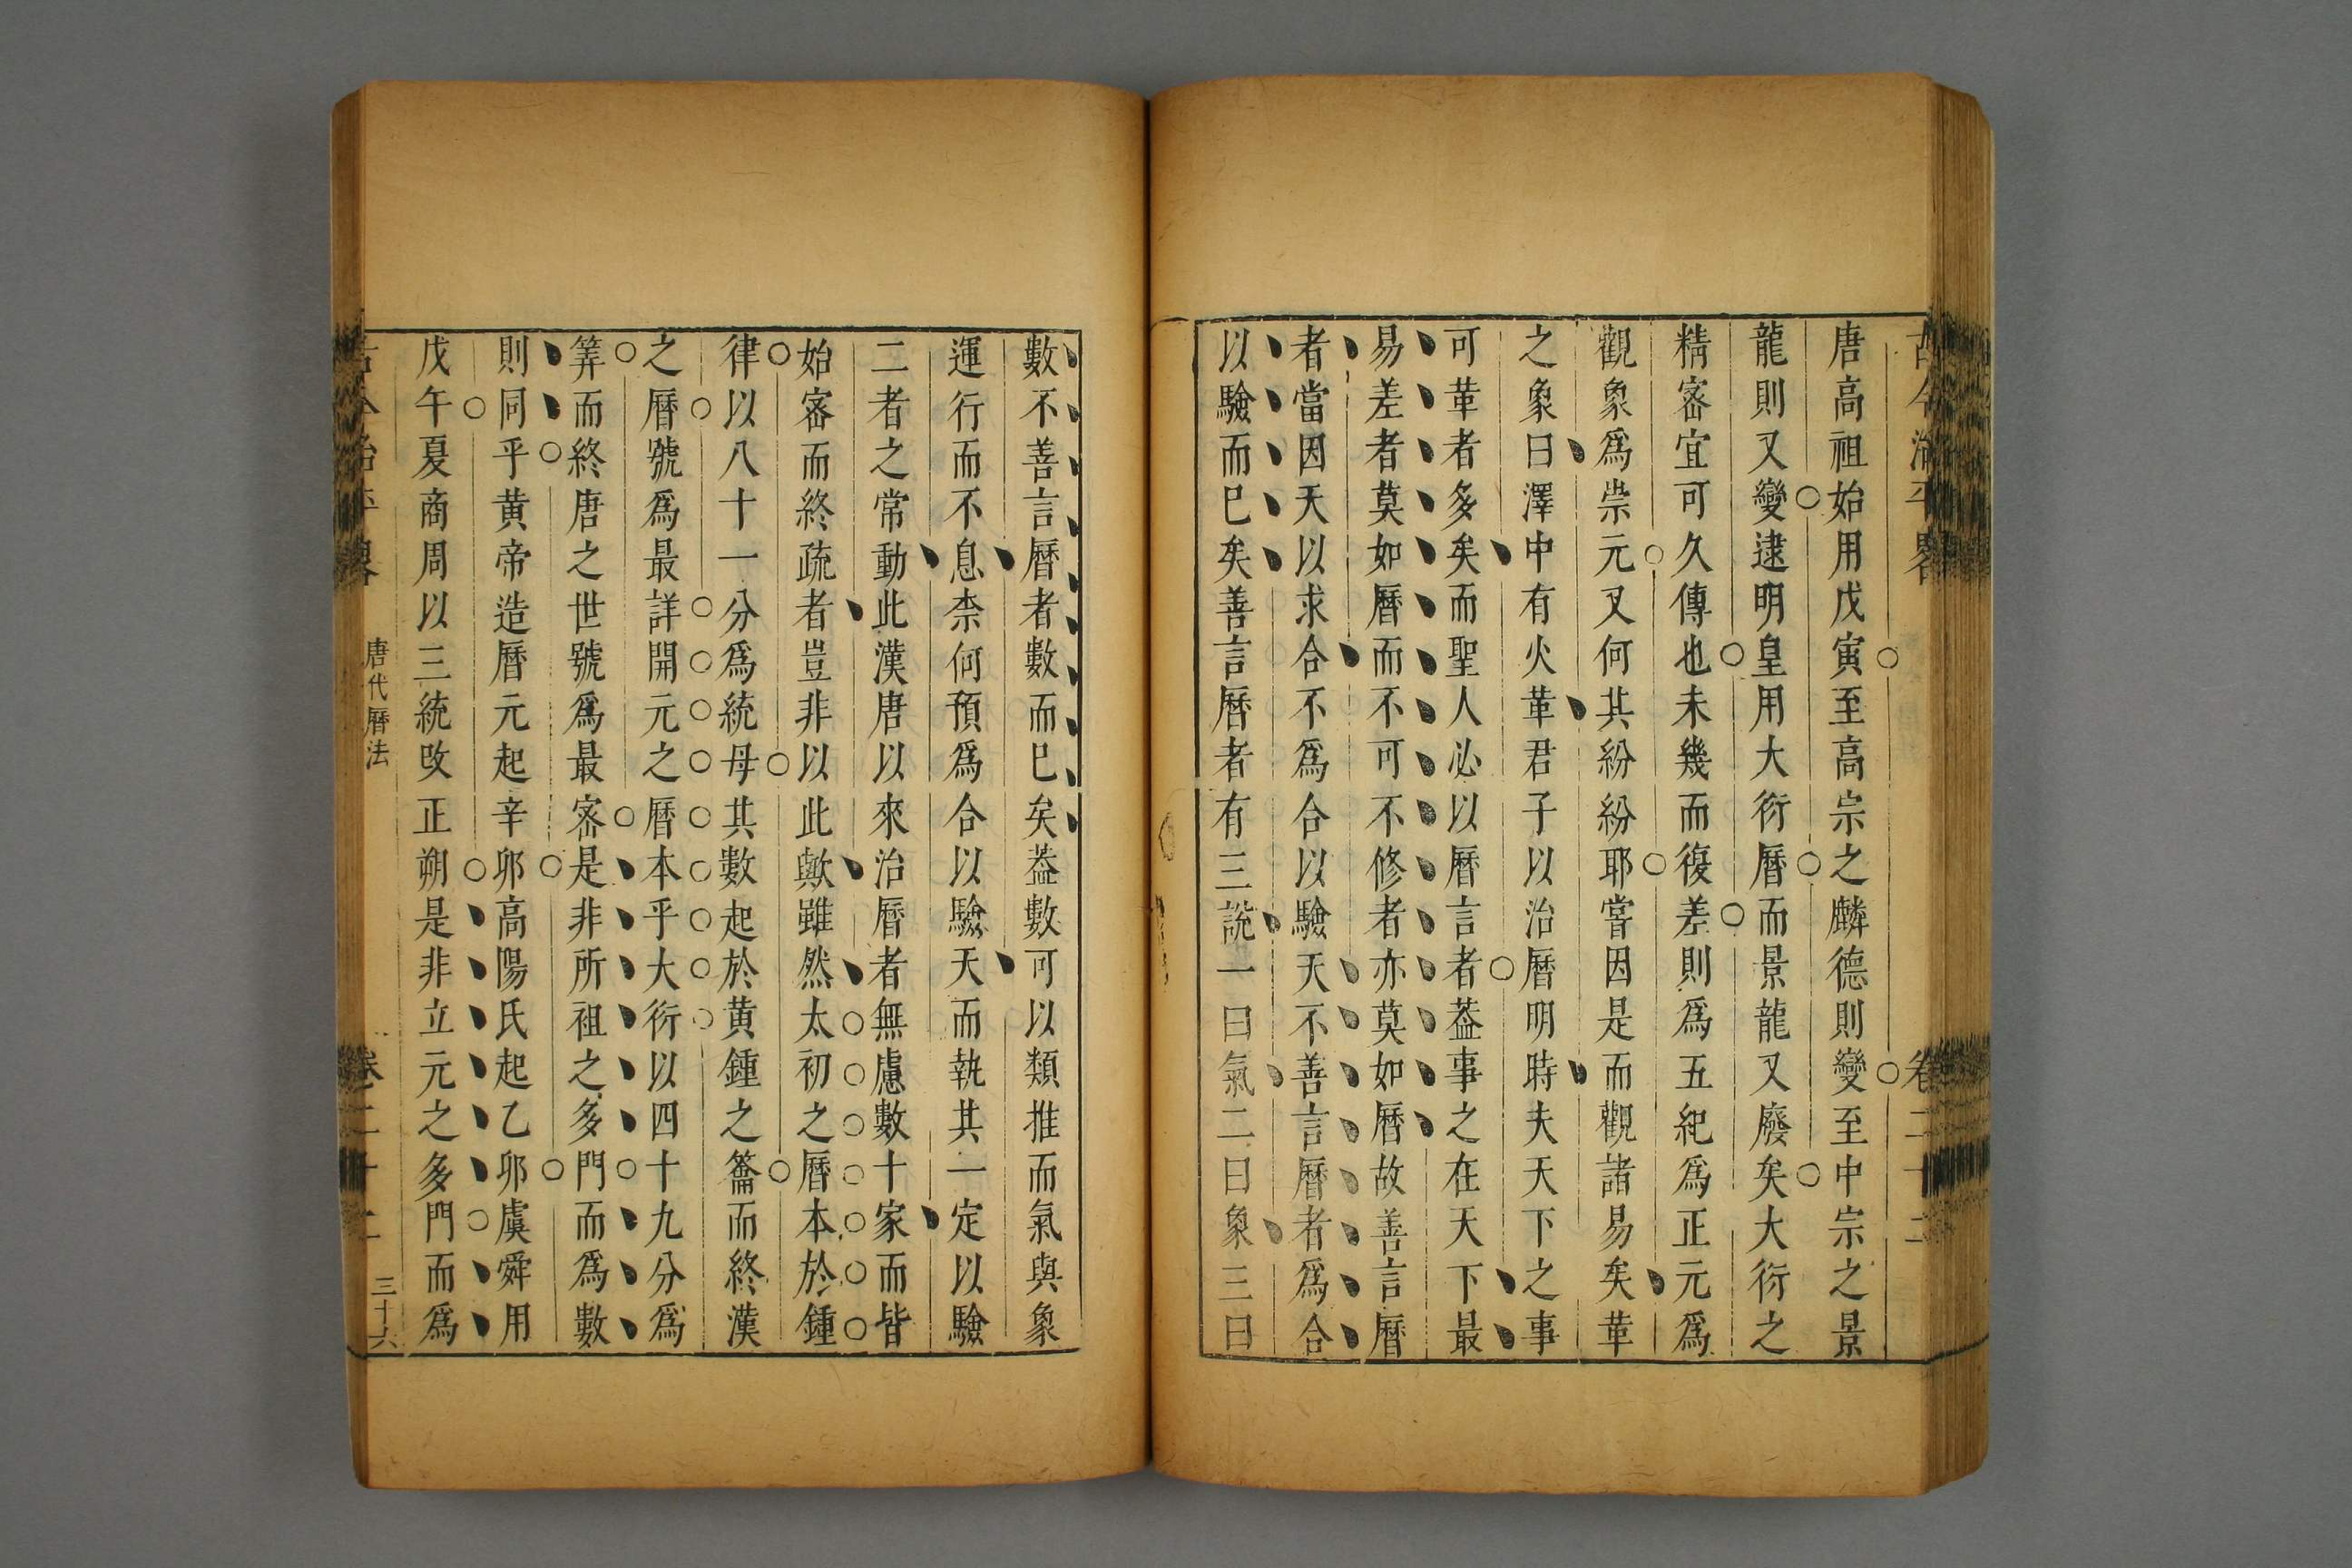 唐高祖始用戊寅至高宗之麟德則變至中宗之景
龍則又變逮明皇用大衍曆而景龍又廢矣大衍之
精宻宜可久傳也未幾而復差則爲五紀爲正元爲
觀象爲崇元又何其紛紛耶嘗因是而觀諸易矣革
之象曰澤中有火革君子以治曆明時夫天下之事
可革者多矣而聖人必以曆言者葢事之在天下最
易差者莫如曆而不可不修者亦莫如曆故善言曆
者當因天以求合不爲合以驗天不善言曆者爲合
以驗而巳矣善言曆者有三說一曰氣二曰象三曰
數不善言曆者數而巳矣葢數可以類推而氣與象
運行而不息柰何預爲合以驗天而執其一定以驗
二者之常動此漢唐以來治曆者無慮數十家而皆
始宻而終疏者豈非以此歟雖然太初之曆本於鍾
律以八十一分爲統母其數起於黄鍾之籥而終漢
之曆號爲最詳開元之曆本乎大衍以四十九分爲
筭而終唐之世號爲最宻是非所祖之多門而爲數
則同乎黄帝造曆元起辛卯高陽氏起乙卯虞舜用
戊午夏商周以三統改正朔是非立元之多門而爲
唐代曆法
卷二十二
三十六